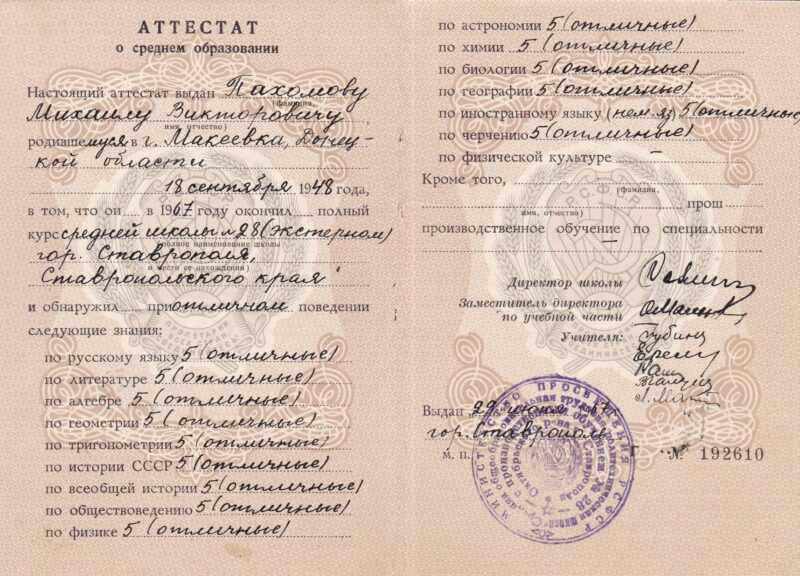 АТТЕСТАТ
о среднем образовании
Настоящий аттестат выдан Пахомову
(фамилия,
Михаилу Викторовичу
имя, отчество)
родившемуся в г. Макеевка, Донец-
кой области
18 сентября 1948 года,
в том, что он в 1967 году окончил полный
курс средней школы № 28 (экстерном)
(полное наименование школы
гор. Ставрополя,
и место ее нахождения)
Ставропольского края
и обнаружил при отличном поведении
следующие знания:
по русскому языку 5 (отличные)
по литературе 5 (отличные)
по алгебре 5 (отличные)
по геометрии 5 (отличные)
по тригонометрии 5 (отличные)
по истории СССР 5 (отличные)
по всеобщей истории 5 (отличные)
по обществоведению 5 (отличные)
по физике 5 (отличные)
по астрономии 5 (отличные)
по химии 5 (отличные)
по биологии 5 (отличные)
по географии 5 (отличные)
по иностранному языку (нем. яз) 5 (отличные)
по черчению 5 (отличные)
по физической культуре –
Кроме того,
(фамилия,
прош
имя, отчество)
производственное обучение по специальности
–
Директор школы
Заместитель директора
по учебной части
Учителя:
Выдан 29 июня 67 г.
гор. Ставрополь
м. п.
Г № 192610
МИНИСТЕРСТВО ПРОСВЕЩЕНИЯ РСФСР
РСФСР